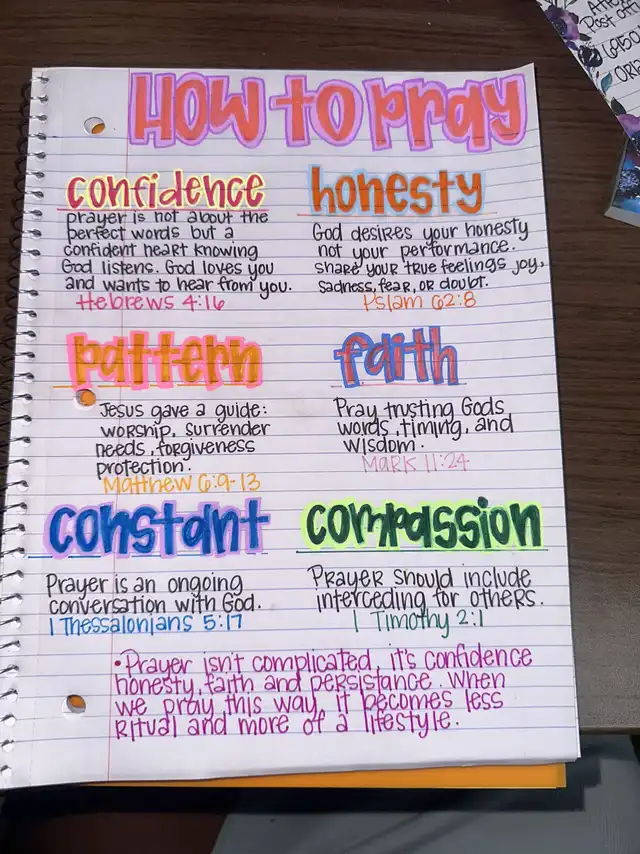 How to pray
confidence
prayer is not about the
perfect words but a
confident heart knowing
God listens. God loves you
and wants to hear from you.
Hebrews 4:16
honesty
God desires your honesty
not your performance.
share your true feelings joy,
sadness, fear, or doubt.
Pslam 62:8
pattern
Jesus gave a guide:
worship, surrender
needs, forgiveness
protection.
Matthew 6:9-13
faith
Pray trusting Gods
words, timing, and
wisdom.
Mark 11:24
constant
Prayer is an ongoing
conversation with God.
1 Thessalonians 5:17
compassion
Prayer should include
interceding for others.
1 Timothy 2:1
•Prayer isn't complicated, it's confidence
honesty, faith and persistance. When
we pray this way, it becomes less
ritual and more of a lifestyle.
Post off